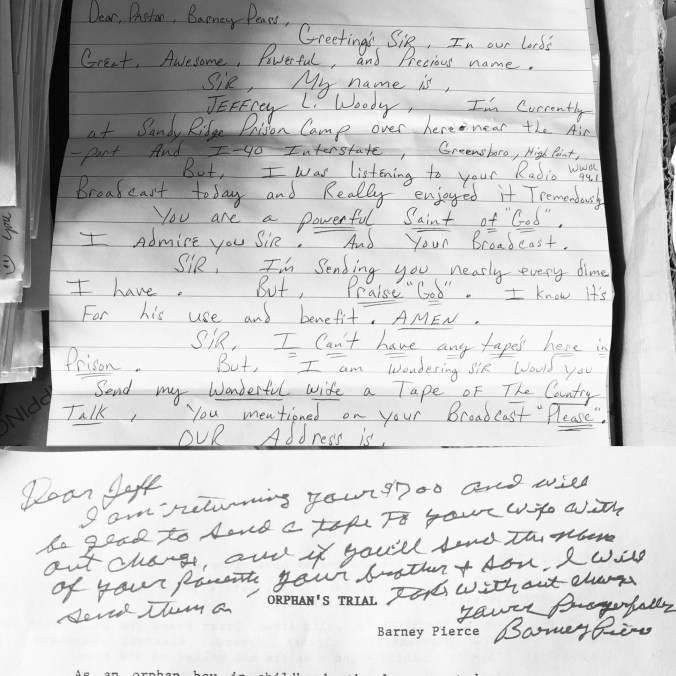 Dear, Pastor, Barney Pears,
Greeting's SiR, In our Lord's
Great, Awesome, Powerful, and Precious name.
SiR, My name is,
JEFFrey L. Woody, I'm Currently
at Sandy Ridge Prison Camp over here near the Air
-port And I-40 Interstate, Greensboro, High Point,
But, I was listening to your Radio WWGL 94.1
Broadcast today and Really enjoyed it Tremendously
You are a powerful Saint of "God".
I Admire you SiR. And Your Broadcast.
SiR, I'm Sending you nearly every dime
I have. But, Praise "God". I know it's
For his use and benefit. AMEN.
SiR, I Can't have any tape's here in
Prison. But, I am wondering SiR Would you
Send my Wonderful Wife a Tape of The Country
Talk, You mentioned on your Broadcast "Please".
OUR Address is,
Dear Jeff
I am returning your $7.00 and will
be glad to send a tape To your wife with
out charge, and if you'll send the
of your Parents, your brother + son, I will
send them a tape without charge
ORPHAN'S TRIAL
Yours Prayerfully
Barney Pierce Barney Pierce
As an orphan boy in childhood